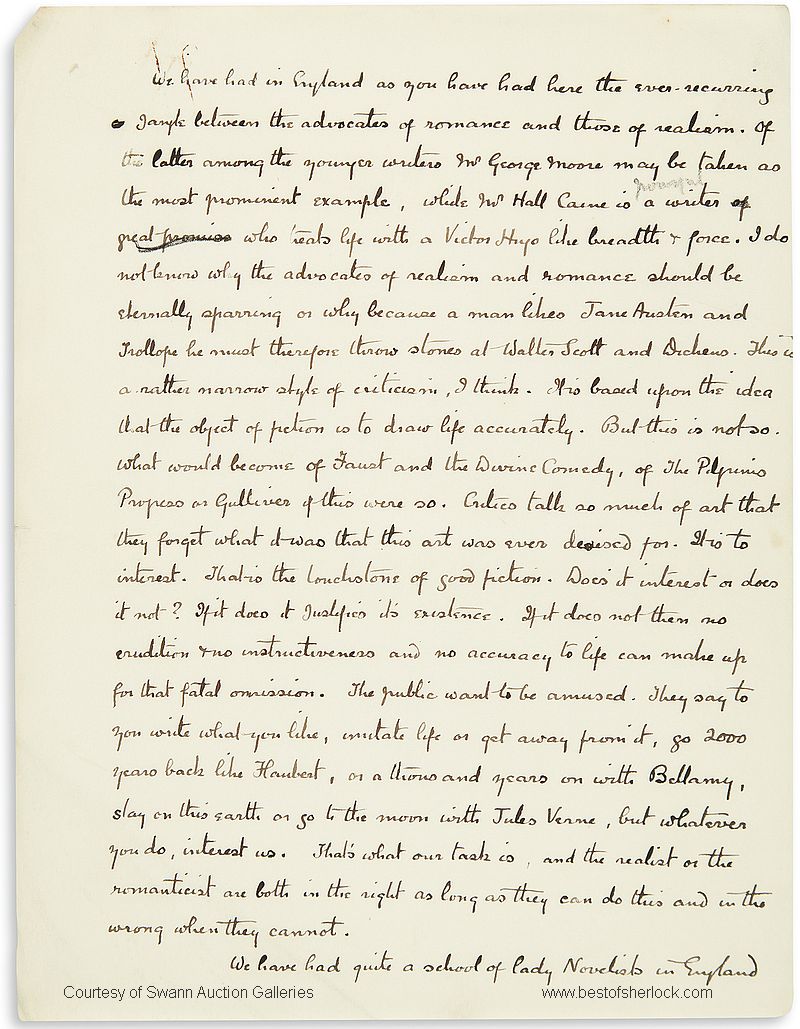 We have had in England as you have had here the ever-recurring
jangle between the advocates of romance and those of realism. Of
the latter among the younger writers Mr George Moore may be taken as
the most prominent example, while Mr Hall Caine is a writer of
great promise who treats life with a Victor Hugo like breadth & force. I do
not know why the advocates of realism and romance should be
eternally sparring or why because a man likes Jane Austen and
Trollope he must therefore throw stones at Walter Scott and Dickens. This is
a rather narrow style of criticism, I think. It is based upon the idea
that the object of fiction is to draw life accurately. But this is not so.
What would become of Faust and the Divine Comedy, of The Pilgrims
Progress or Gulliver if this were so. Critics talk so much of art that
they forget what it was that this art was ever devised for. It is to
interest. That is the touchstone of good fiction. Does it interest or does
it not? If it does it justifies it's existence. If it does not then no
erudition & no instructiveness and no accuracy to life can make up
for that fatal omission. The public want to be amused. They say to
you write what you like, imitate life or get away from it, go 2000
years back like Flaubert, or a thousand years on with Bellamy,
stay on this earth or go to the moon with Jules Verne, but whatever
you do, interest us. That's what our task is, and the realist or the
romanticist are both in the right as long as they can do this and in the
wrong when they cannot.
We have had quite a school of lady Novelists in England
Courtesy of Swann Auction Galleries
www.bestofsherlock.com